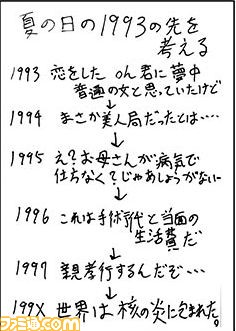 夏の日の1993の先を
考える
1993 恋をした oh君に夢中
普通の女と思っていたけど
↓
1994 まさか美人局だったとは‥‥
↓
1995 え?お母さんが病気で
仕ちなく?じゃあしょうがない
↓
1996 これは手術代と当面の
生活費だ
↓
1997 親孝行するんだぞ‥‥
↓
199X 世界は核の炎に包まれた
ファミ通.com